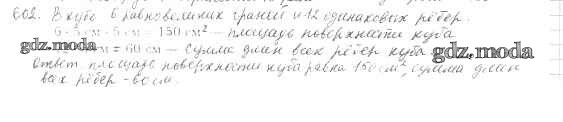 602. В кубе 6 равновеликих граней и 12 одинаковых рёбер.
6 · 5 см · 5 см = 150 см² – площадь поверхности куба
gdz.moda см = 60 см – сумма длин всех рёбер куба gdz.moda
Ответ площадь поверхности куба равна 150 см², сумма длин
всех рёбер – 60 см.